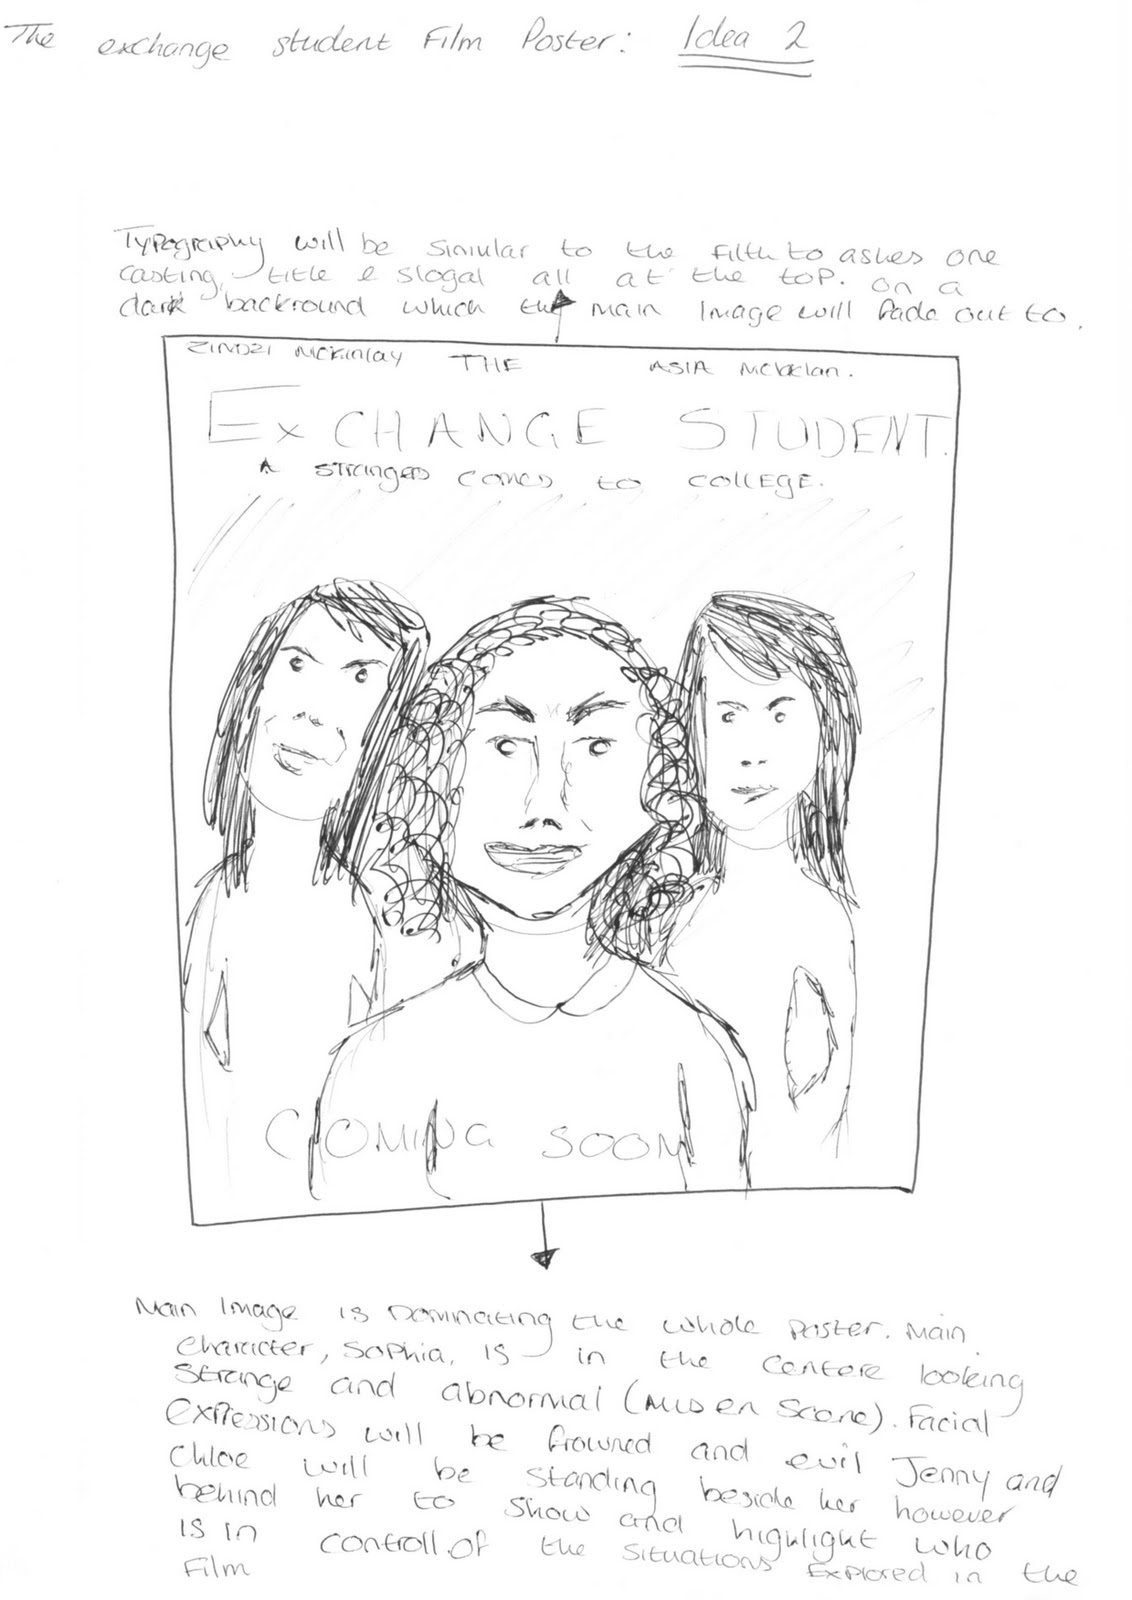 The exchange student Film Poster: Idea 2
Typography will be similar to the filth to ashes one
casting, title & slogal all at the top. on a
dark backround which the main Image will fade out to.
ZINDZI McKinlay THE ASIA
ExCHANGE STUDENT.
A strangers comes to collEGE.
COMING SOON
Main Image is Dominating the whole poster. Main
character, Sophia, is in the centere looking
strange and abnormal (Mis en scene). Facial
expressions will be frowned and evil Jenny and
Chloe will be standing beside her however
behind her to show and highlight who
is in controll of the situations Explored in the
Film